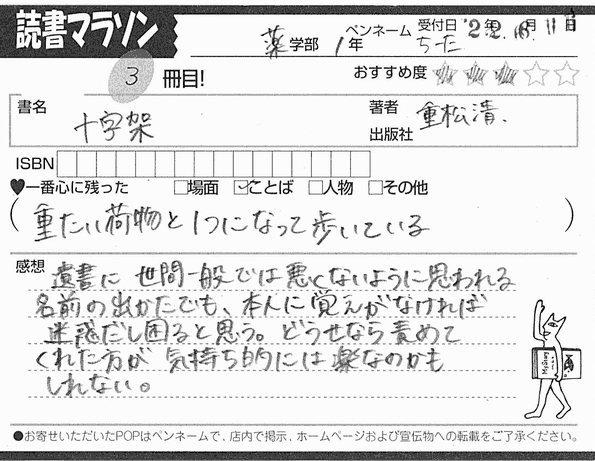 読書マラソン
薬学部 1年 ペンネーム ちーた 受付日 '22年 6月 11日
3冊目!
おすすめ度 ★★★☆☆
書名 十字架
著者 重松清.
出版社
ISBN
♥一番心に残った □場面 ☑ことば □人物 □その他
(重たい荷物と1つになって歩いている)
感想
遺書に世間一般では悪くないように思われる
名前の出かたでも、本人に覚えがなければ
迷惑だし困ると思う。どうせなら責めて
くれた方が気持ち的には楽なのかも
しれない。
●お寄せいただいたPOPはペンネームで、店内で掲示、ホームページおよび宣伝物への転載をご了承ください。